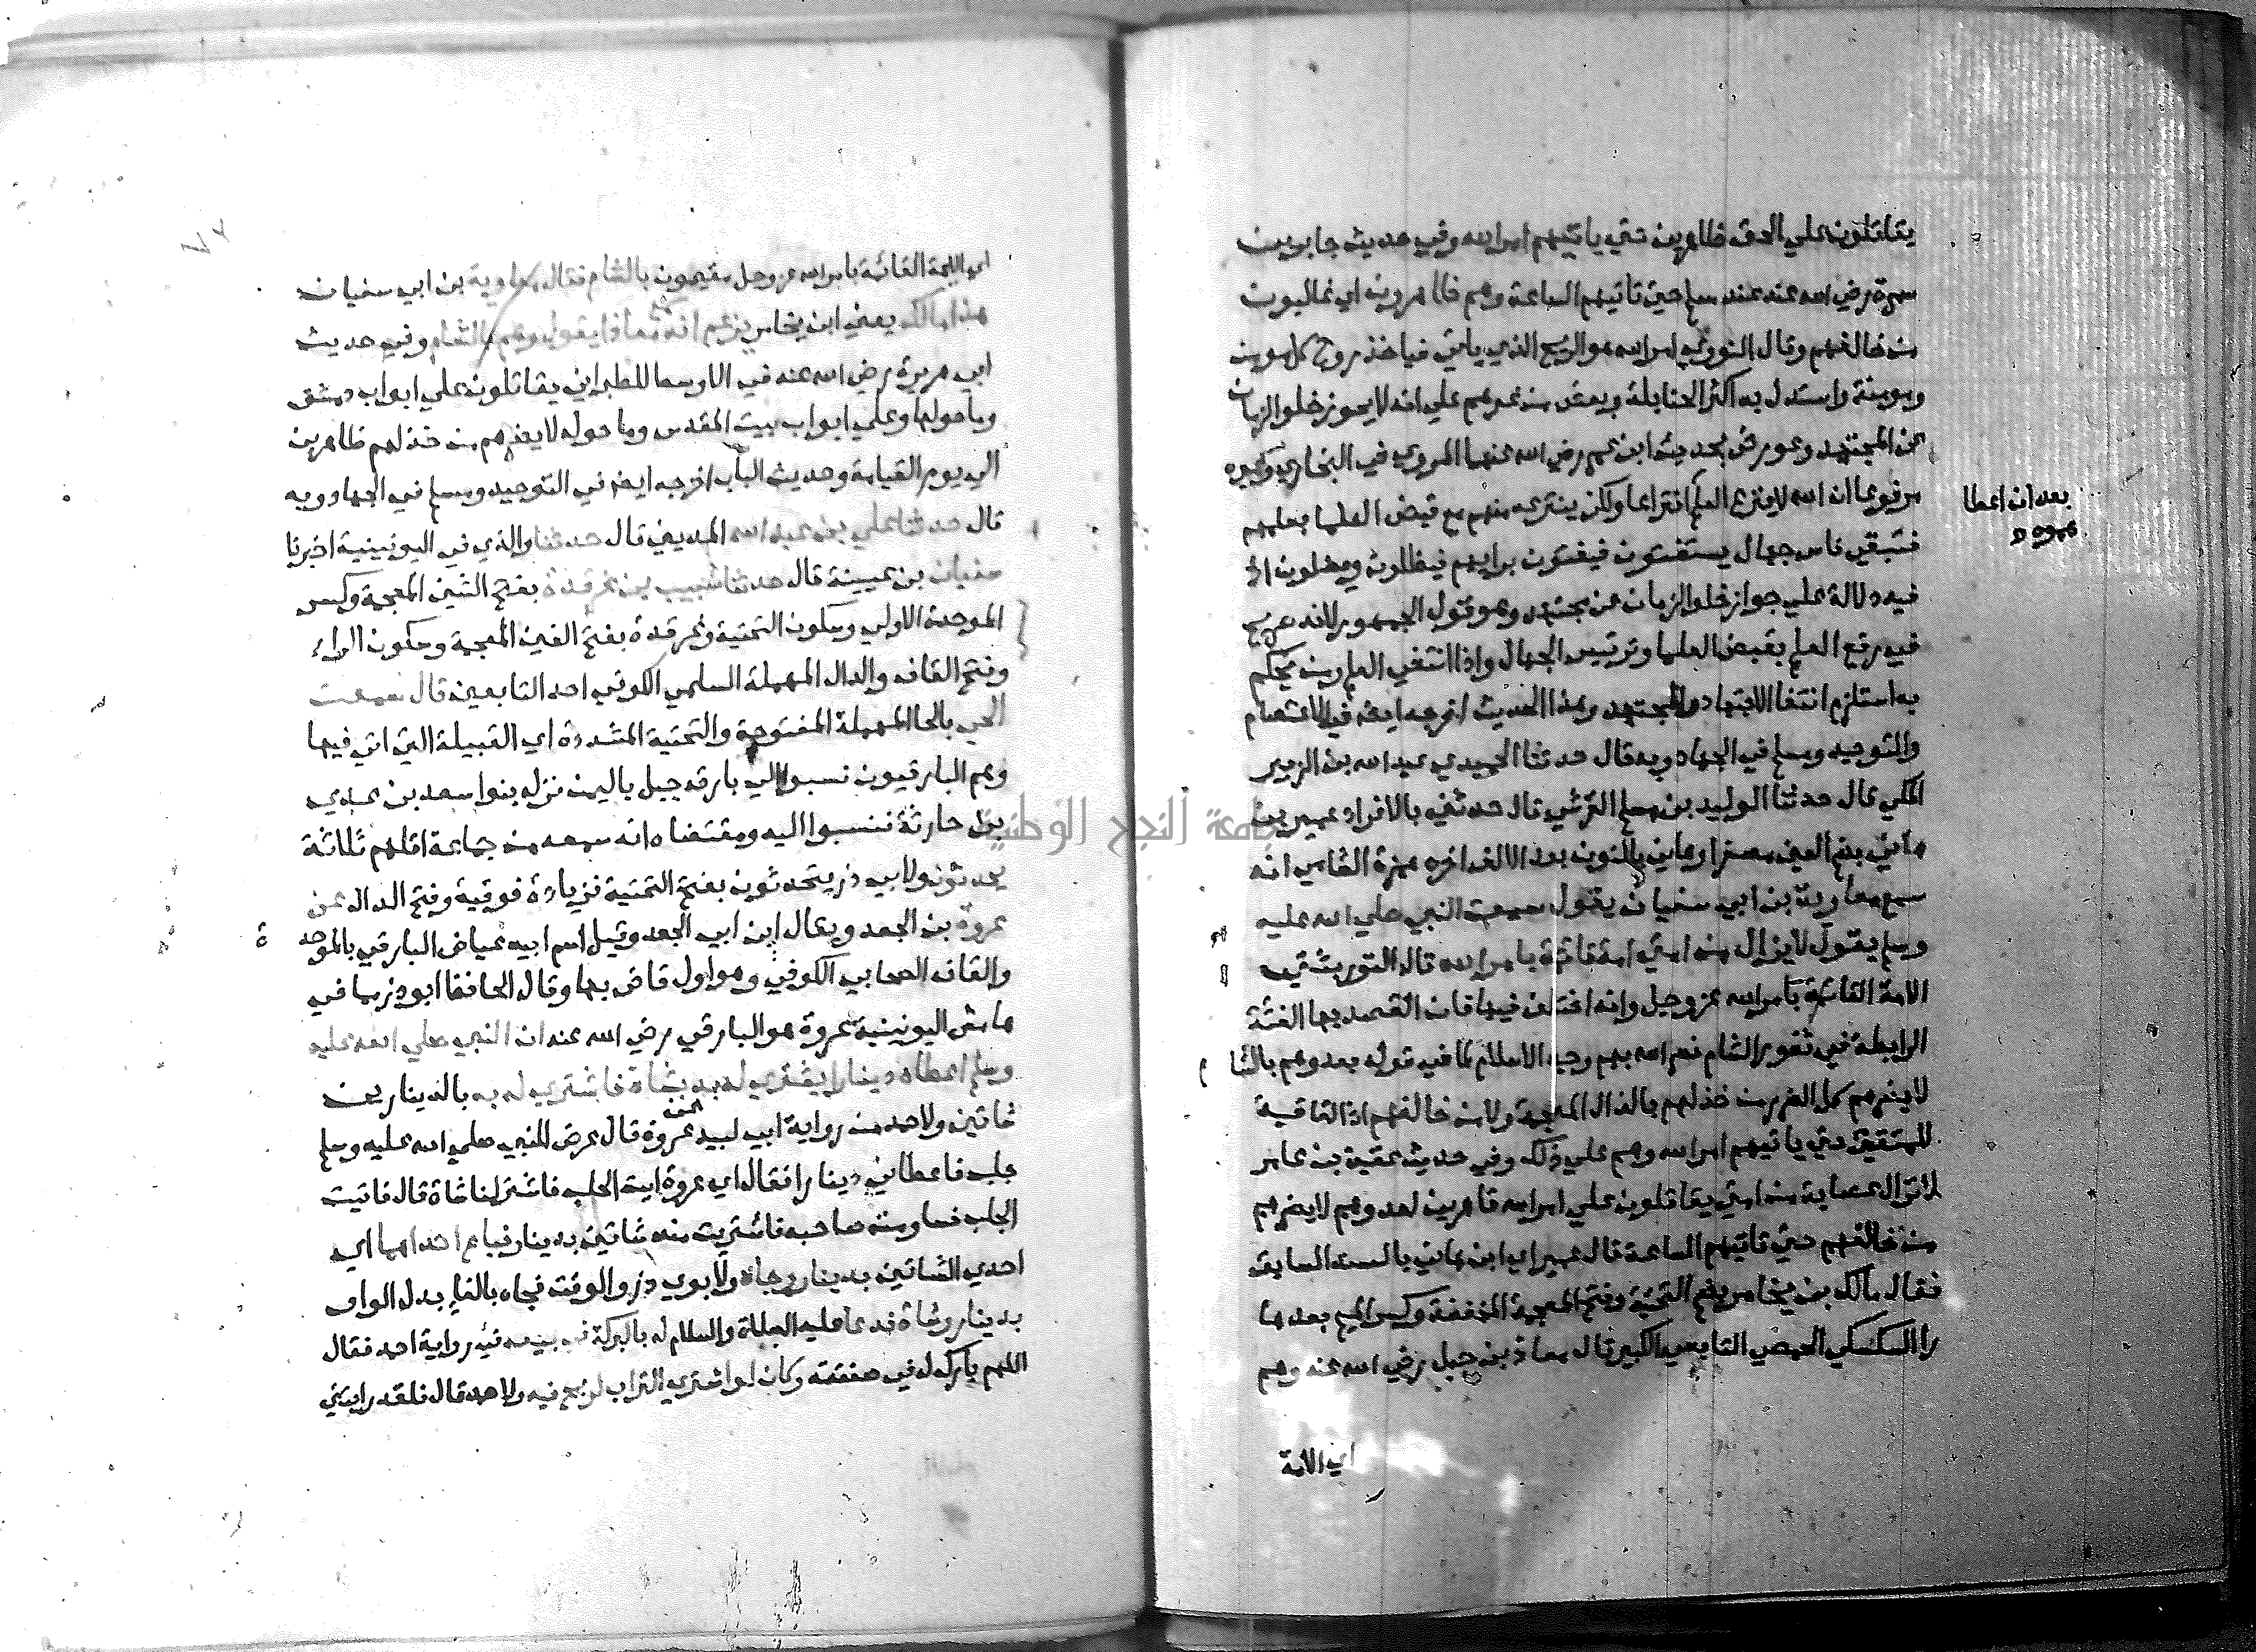 يقاتلون علي الحق ظاهرين حتي ياتيهم امر الله وفي حديث جابر بن
سمرة رضي الله عنه عند مسلم حتي تاتيهم الساعة وهم ظاهرون اي غالبون
من خالفهم وقال النووي امر الله هو الريح الذي ياتي فياخذ روح كل مومن
ومومنة واستدل به اكثر الحنابلة وبعض من غيرهم علي انه لا يجوز خلو الزمان
عن المجتهد وعورض بحديث ابن عمر رضي الله عنهما المروي في البخاري وغيره
مرفوعا ان الله لا ينزع العلم انتزاعا ولكن ينتزعه منهم مع قبض العلما بعلمهم
بعد ان اعطا
هموه
فتبقي ناس جهال يستفتون فيفتون برايهم فيظلون ويضلون اذ
فيه دلالة علي جواز خلو الزمان عن مجتهد وهو قول الجمهور لانه صريح
في رفع العلم بقبض العلما وترئيس الجهال واذا انتفي العلم ومن يحكم
به استلزم انتفا الاجتهاد والمجتهد وهذا الحديث اخرجه ايضا في الاعتصام
والتوحيد ومسلم في الجهاد وبه قال حدثنا الحميدي عبد الله بن الزبير
المكي قال حدثنا الوليد بن مسلم القرشي قال حدثني بالافراد عمير بن
هاني بضم العين مصغرا وهاني بالنون بعد الالف اخره همزة الشامي انه
سمع معاوية بن ابي سفيان يقول سمعت النبي صلي الله عليه
وسلم يقول لا يزال من امتي امة قائمة بامر الله قال التوربشتي
الامة القائمة بامر الله عز وجل وانه اختلف فيها فان القصد بها الفئة
الرابطة في ثغور الشام نصر الله بهم وجه الاسلام لما في قوله بعد وهم بالشام
لا يضرهم كل الضرر من خذلهم بالذال المعجمة ولا من خالفهم اذ العاقبة
للمتقين حتي ياتيهم امر الله وهم علي ذلك وفي حديث عقبة بن عامر
لا تزال عصابة من امتي يقاتلون علي امر الله قاهرين لعدوهم لا يضرهم
من خالفهم حتي تاتيهم الساعة قال عمير اي ابن هاني بالسند السابق
فقال مالك بن يخامر بضم التحتية وفتح المعجمة المخففة وكسر الميم بعدها
را السكسكي الحمصي التابعي الكبير قال معاذ بن جبل رضي الله عنه وهم
اي الامة
اي الامة القائمة بامر الله عز وجل مقيمون بالشام فقال معاوية بن ابي سفيان
هذا مالك يعني ابن يخامر يزعم انه سمع معاذا يقول وهم بالشام وفي حديث
ابي هريرة رضي الله عنه في الاوسط للطبراني يقاتلون علي ابواب دمشق
وما حولها وعلي ابواب بيت المقدس وما حوله لا يضرهم من خذلهم ظاهرين
الي يوم القيامة وحديث الباب اخرجه ايضا في التوحيد ومسلم في الجهاد وبه
قال حدثنا علي بن عبد الله المديني قال حدثنا والذي في اليونينية اخبرنا
سفيان بن عيينة قال حدثنا شبيب بن غرقدة بفتح الشين المعجمة وكسر
الموحدة الاولي وسكون التحتية وغرقدة بفتح الغين المعجمة وسكون الراء
وفتح القاف والدال المهملة السلمي الكوفي احد التابعين قال سمعت
الحي بالحا المهملة المفتوحة والتحتية المشددة اي القبيلة التي انا فيها
وهم البارقيون نسبوا الي بارق جبل باليمن نزله بنوا سعد بن عدي
بن حارثة فنسبوا اليه ومقتضاه انه سمعه من جماعة اقلهم ثلاثة
يحدثون ولابي ذر يتحدثون بفتح التحتية وزيادة فوقية وفتح الدال عن
عروة بن الجعد ويقال ابن ابي الجعد وقيل اسم ابيه عياض البارقي بالموحدة
والقاف الصحابي الكوفي وهو اول قاض بها وقال الحافظ ابو ذر مما في
هامش اليونينية عروة هو البارقي رضي الله عنه ان النبي صلي الله عليه
وسلم اعطاه دينارا يشتري له به شاة فاشتري له به بالدينار
شاتين ولاحمد من رواية ابي لبيد عن عروة قال عرض للنبي صلي الله عليه وسلم
جلب فاعطاني دينارا فقال اي عروة ايت الجلب فاشتر لنا شاة قال فاتيت
الجلب فساومت صاحبه فاشتريت منه شاتين بدينار فباع احداهما اي
احدي الشاتين بدينار وجاه ولابوي ذر والوقت فجاه بالفا بدل الواو
بدينار وشاة فدعا عليه الصلاة والسلام له بالبركة في بيعه في رواية احمد فقال
اللهم بارك له في صفقته وكان لو اشتري التراب لربح فيه ولاحمد قال فلقد رايتني
جامعة النجاح الوطنية